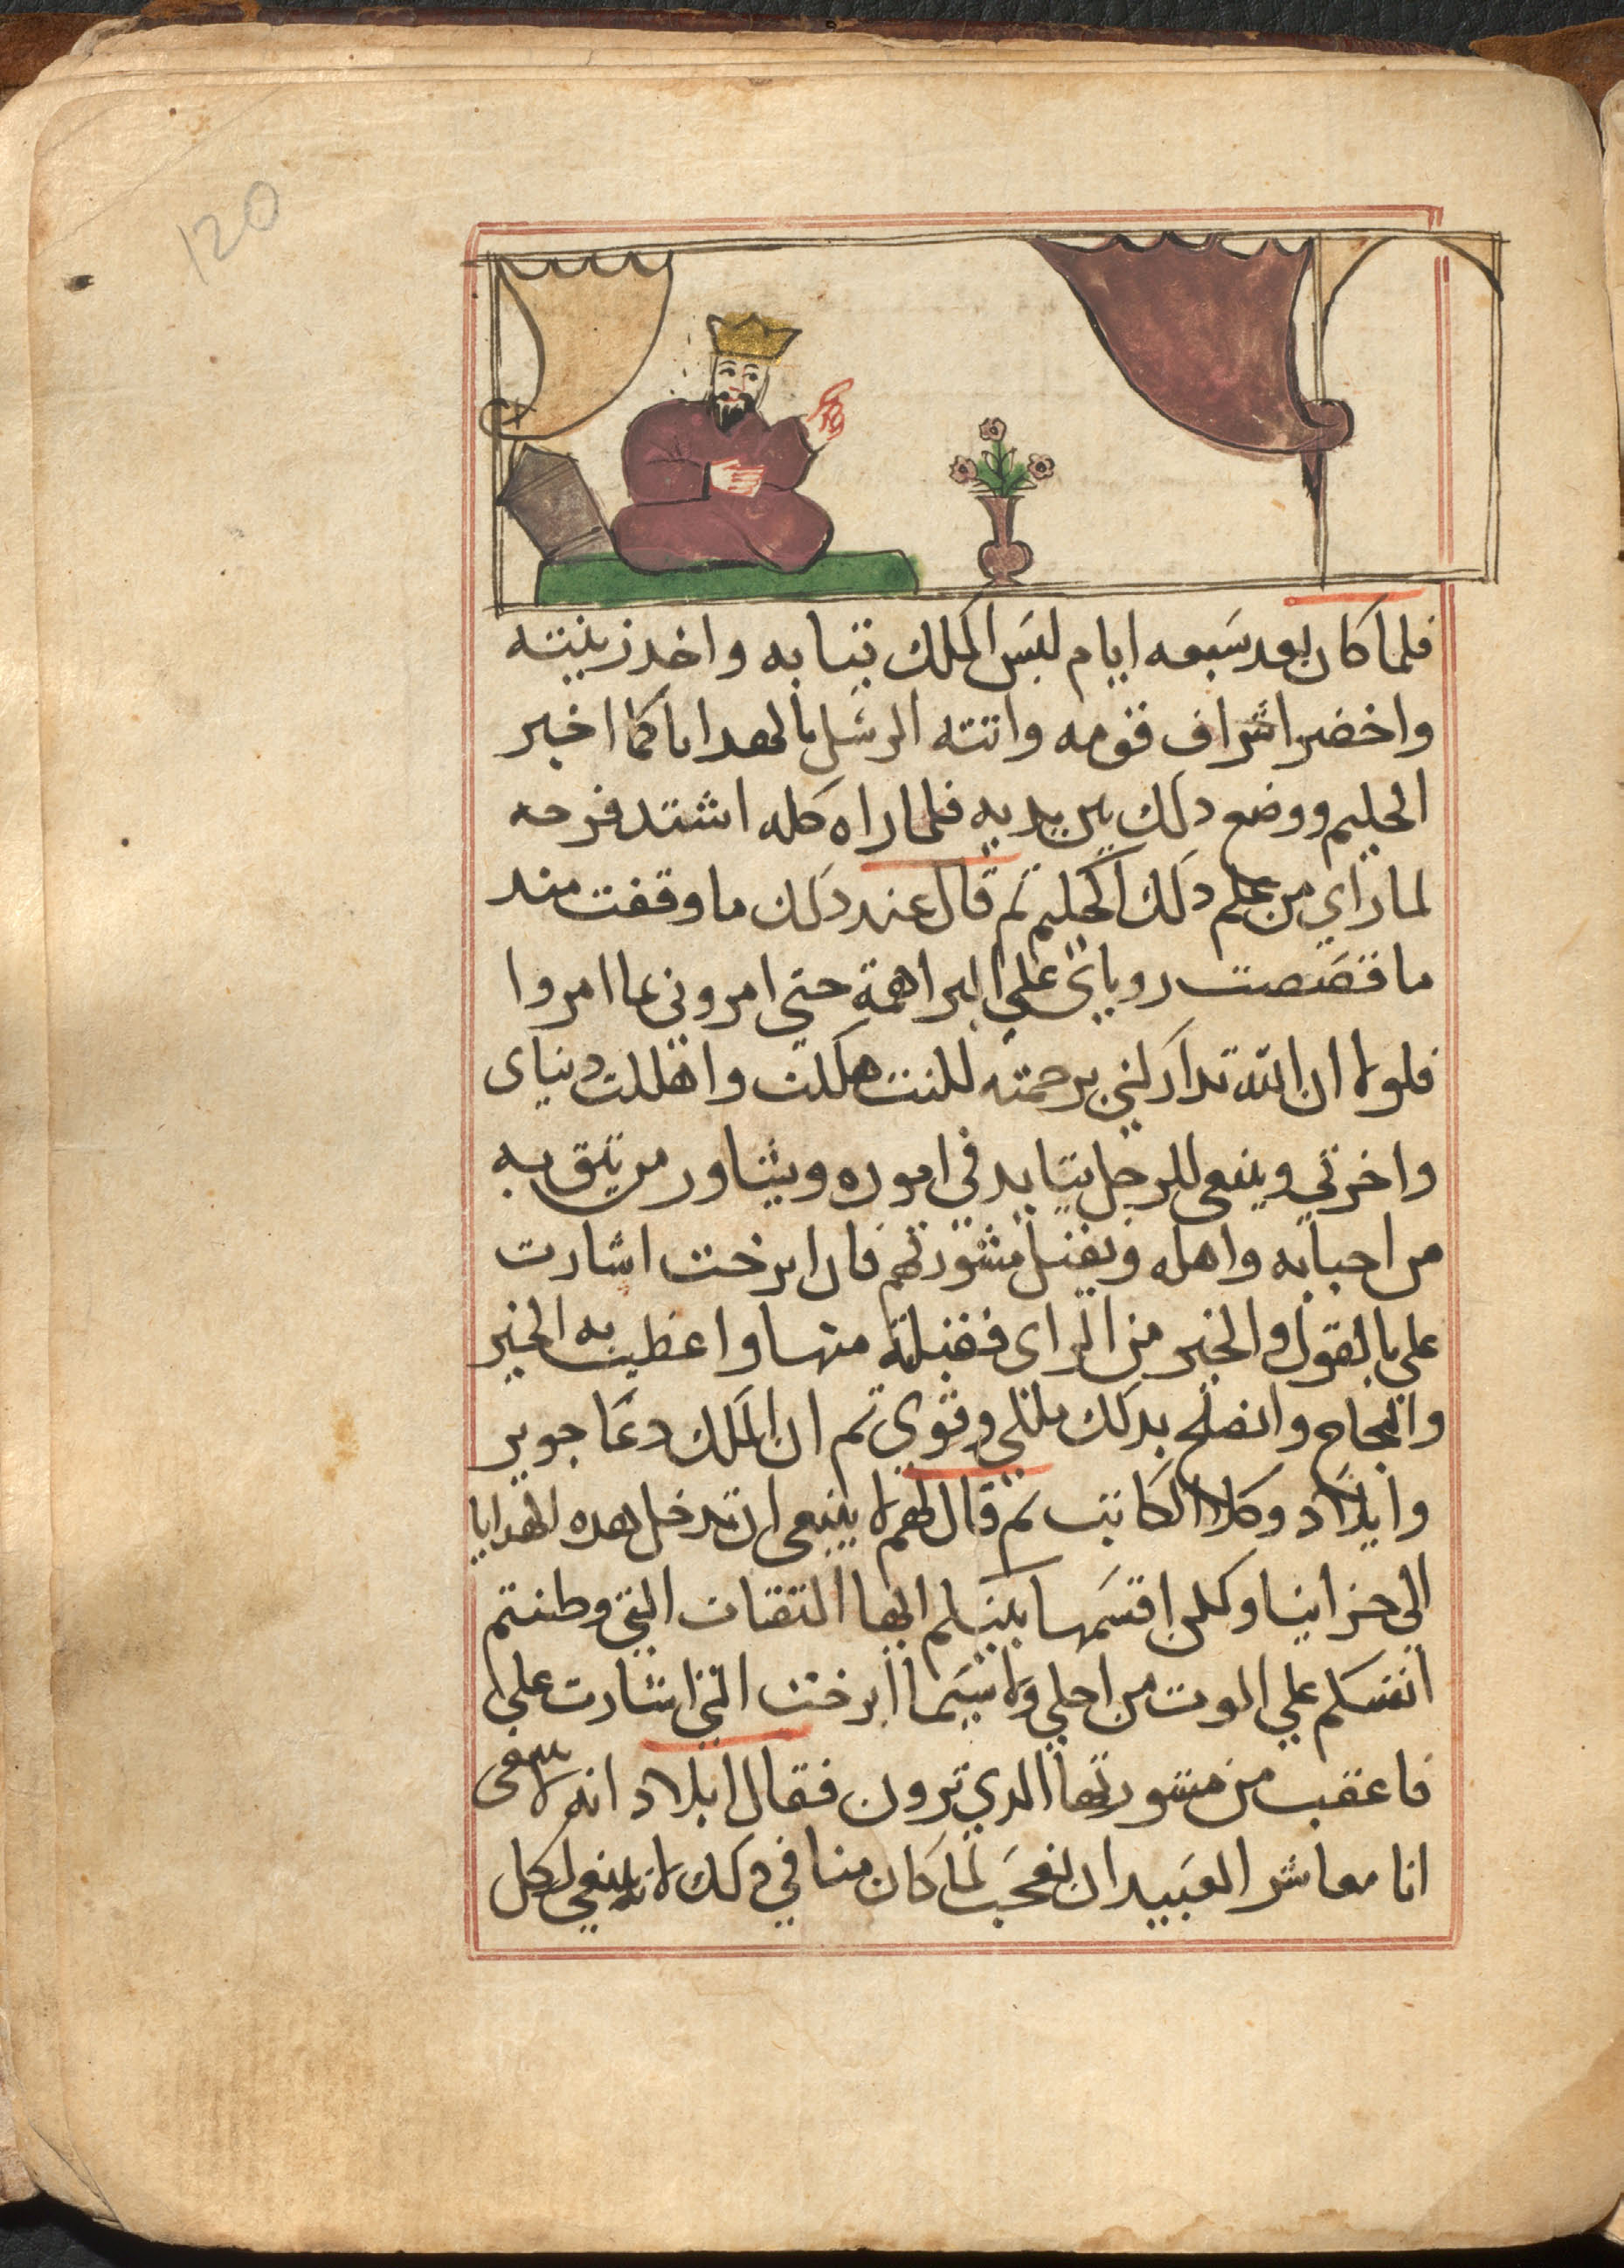 120
فلما كان بعد سبعه ايام لبس الملك تيابه واخد زينته
واحضر اشراف قومه واتته الرسل بالهدايا كما اخبر
الحليم ووضع دلك بين يديه فلما راه كله اشتد فرحه
لما راي من علم دلك الحليم تم قال عند دلك ما وقفت مند
ما قصصت روياى علي البراهمة حتي امروني بما امروا
فلولا ان الله تداركني برحمته لكنت هلكت واهلكت دنياى
واخرتي وينبغى للرجل يتايد في اموره ويشاور من يتق به
من احبابه واهله ويقبل مشورتهم فان ايرخت اشارت
علي بالقول والخير من الراى فقبلته منها واعطيت به الخير
والنجاح وانصلح بدلك ملكي وقوي تم ان الملك دعا جوير
وايلاد وكلا الكاتب تم قال لهم لا ينبغى ان ندخل هده الهدايا
الي خزاينا وكلن اقسمها بينكم ايها التقات التي وطنتم
انفسكم علي الموت من اجلي ولا سيما ايرخت التي اشارت علي
فاعقب من مشورتها الدي ترون فقال ايلاد انه لا ينبغى
انا معاشر العبيد ان نعجب لما كان منا في دلك لانه ينبغي لكل